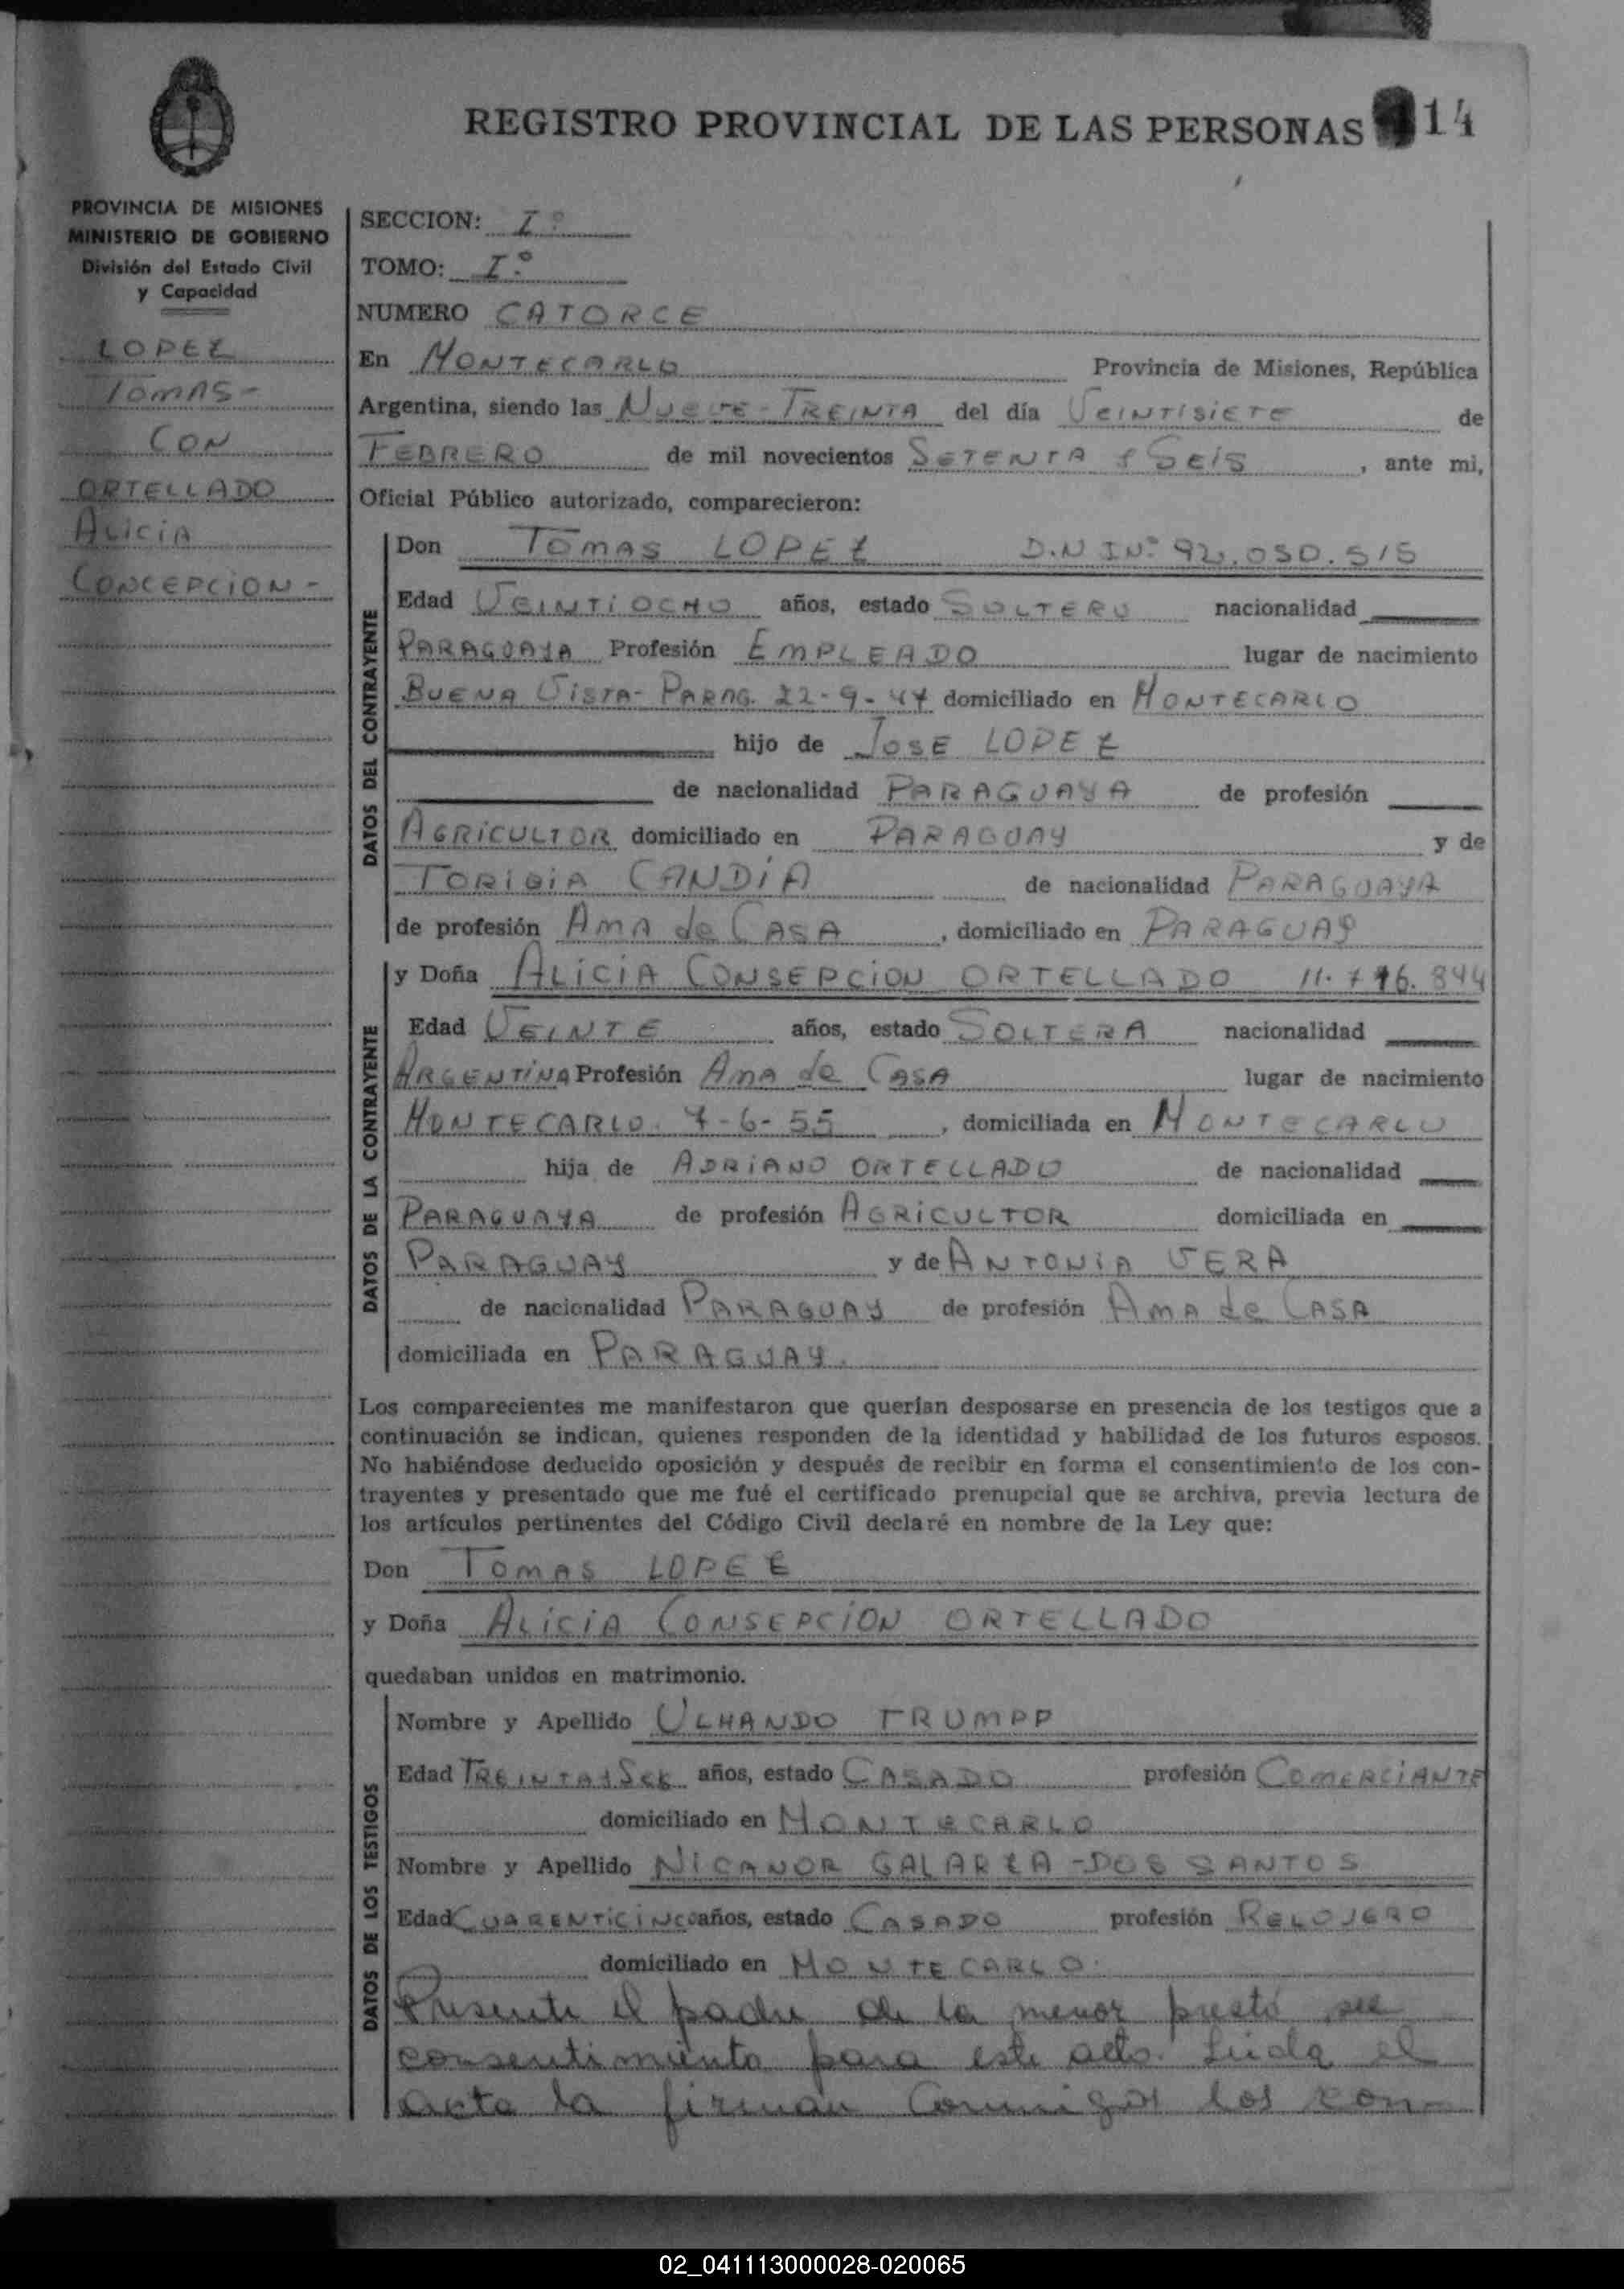 REGISTRO PROVINCIAL DE LAS PERSONAS 14
PROVINCIA DE MISIONES
MINISTERIO DE GOBIERNO
División del Estado Civil
y Capacidad
LOPEZ
TOMAS-
CON
ORTELLADO
ALICIA
CONCEPCION-
SECCION: I°
TOMO: I°
NUMERO CATORCE
En MONTECARLO Provincia de Misiones, República
Argentina, siendo las NUEVE-TREINTA del día VEINTISIETE de
FEBRERO de mil novecientos SETENTA Y SEIS, ante mi,
Oficial Público autorizado, comparecieron:
DATOS DEL CONTRAYENTE
Don TOMAS LOPEZ D.N I N° 92.050.515
Edad VEINTIOCHO años, estado SOLTERO nacionalidad
PARAGUAYA Profesión EMPLEADO lugar de nacimiento
BUENA VISTA- PARAG. 22-9-47 domiciliado en MONTECARLO
hijo de JOSE LOPEZ
de nacionalidad PARAGUAYA de profesión
AGRICULTOR domiciliado en PARAGUAY y de
TORIBIA CANDIA de nacionalidad PARAGUAYA
de profesión AMA de CASA, domiciliado en PARAGUAY
DATOS DE LA CONTRAYENTE
y Doña ALICIA CONSEPCION ORTELLADO 11.716.844
Edad VEINTE años, estado SOLTERA nacionalidad
ARGENTINA Profesión AMA de CASA lugar de nacimiento
MONTECARLO. 7-6-55, domiciliada en MONTECARLO
hija de ADRIANO ORTELLADO de nacionalidad
PARAGUAYA de profesión AGRICULTOR domiciliada en
PARAGUAY y de ANTONIA VERA
de nacionalidad PARAGUAY de profesión AMA de CASA
domiciliada en PARAGUAY.
Los comparecientes me manifestaron que querían desposarse en presencia de los testigos que a
continuación se indican, quienes responden de la identidad y habilidad de los futuros esposos.
No habiéndose deducido oposición y después de recibir en forma el consentimiento de los con-
trayentes y presentado que me fué el certificado prenupcial que se archiva, previa lectura de
los artículos pertinentes del Código Civil declaré en nombre de la Ley que:
Don TOMAS LOPEZ
y Doña ALICIA CONSEPCION ORTELLADO
quedaban unidos en matrimonio.
DATOS DE LOS TESTIGOS
Nombre y Apellido ULHANDO TRUMPP
Edad TREINTA Y SEIS años, estado CASADO profesión COMERCIANTE
domiciliado en MONTECARLO
Nombre y Apellido NICANOR GALARZA-DOS SANTOS
Edad CUARENTICINCO años, estado CASADO profesión RELOJERO
domiciliado en MONTECARLO.
Presente el padre de la menor prestó su
consentimiento para este acto. Leida el
acta la firman conmigo los con-
02_041113000028-020065